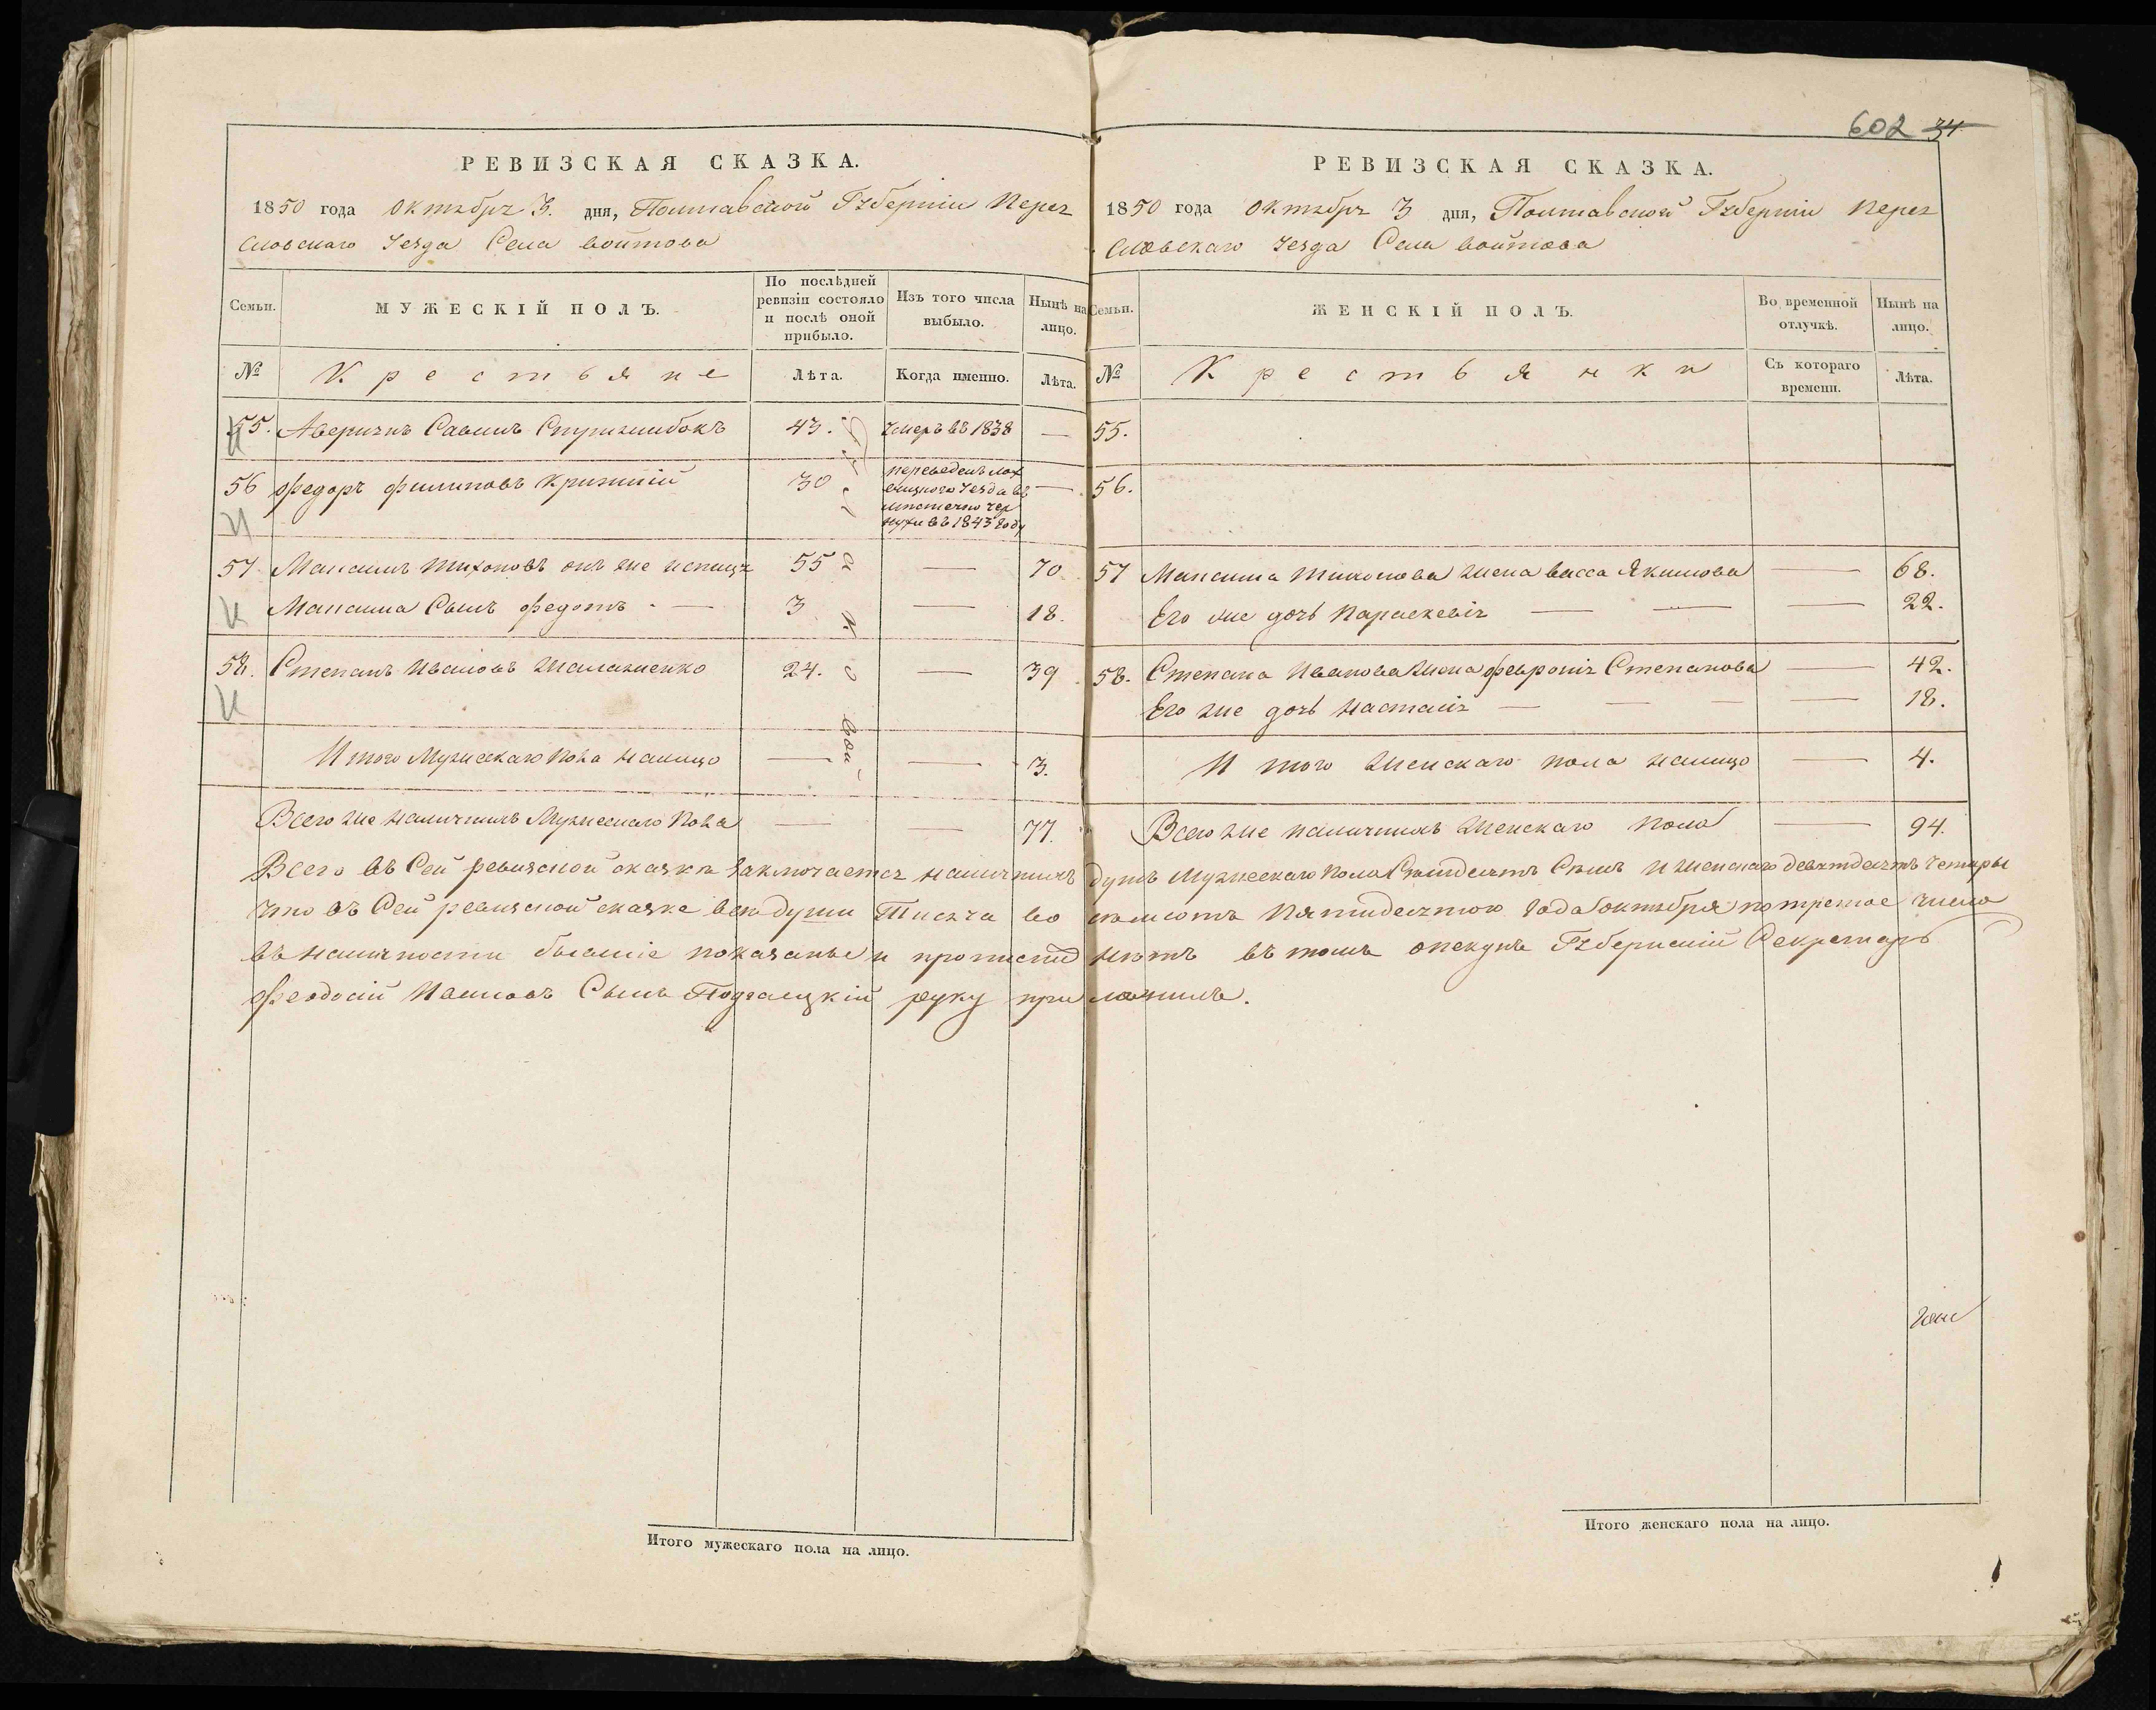 602 34
РЕВИЗСКАЯ СКАЗКА.
1850 года Октября 3. дня, Полтавской Губерніи Перея
словскаго Уезда Села Войтова
Семьи.
МУЖЕСКІЙ ПОЛЪ.
По послѣдней
ревизіи состояло
и послѣ оной
прибыло.
Изъ того числа
выбыло.
Нынѣ на
лицо.
№
Крестьяне
Лѣта.
Когда именно.
Лѣта.
55. Аверкій Савинъ 43. Умеръ въ 1838 —
56 Федоръ Филиповъ 30 переведенъ Лох
вицкого Уезда въ —
местечко Чер
нухи въ 1843 году
57 Максимъ Тихоновъ онъ же 55 — 70.
Максима Сынъ Федотъ — 3 — 18.
58. Степанъ Ивановъ 24. — 39
Итого Мужескаго Пола налицо — — 3.
Всего же наличнихъ Мужескаго Пола — — 77.
РЕВИЗСКАЯ СКАЗКА.
1850 года Октября 3 дня, Полтавской Губерніи Перея
словскаго Уезда Села Войтова
Семьи.
ЖЕНСКІЙ ПОЛЪ.
Во временной
отлучкѣ.
Нынѣ на
лицо.
№
Крестьянки
Съ котораго
времени.
Лѣта.
55.
56.
57 Максима Тихонова жена Васса Якимова — 68.
Его же дочь Параскевія — — — 22.
58. Степана Иванова жена Февронія Степанова — 42.
Его же дочь Настасія — — — — 18.
Итого Женскаго пола налицо — 4.
Всего же наличнихъ Женскаго пола — 94.
Всего въ Сей ревизской сказкѣ заключается наличнихъ душъ Мужескаго пола Семдесятъ Семь и Женскаго девятдесятъ четыре
что въ Сей ревизской сказке все души Тисяча во семсотъ Пятидесятого года октября по третое число
въ наличности бывшіе показаны и прописнихъ нѣтъ въ томъ опекунъ Губернскій Секретарь
Феодосій Ивановъ Сынъ Подгаецкій руку приложилъ.
Итого мужескаго пола на лицо.
Итого женскаго пола на лицо.